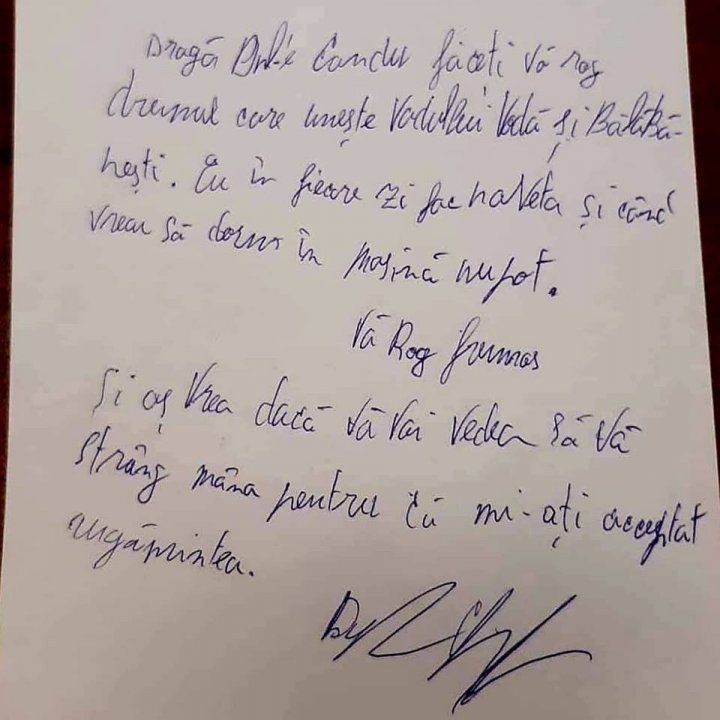 Dragă Dnl-e Candu faceti vă rog
drumul care unește Vadului Vodă și Bălăbă-
nești. Eu în fiecare zi fac naveta și când
vreau să dorm în mașină nu pot.
Vă Rog frumos
Și aș vrea dacă vă voi vedea să vă
strâng mâna pentru că mi-ați acceptat
rugămintea.